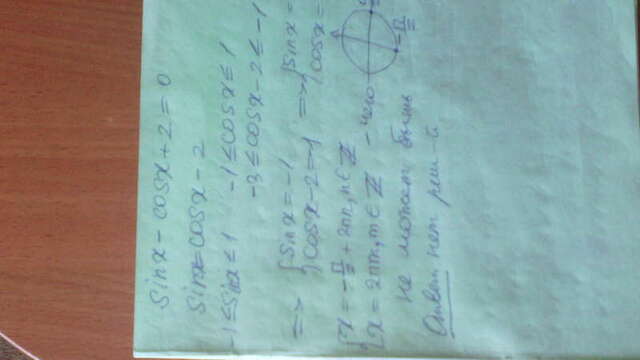 sinx - cosx + 2 = 0
sinx = cosx - 2
-1 ≤ sinx ≤ 1 -1 ≤ cosx ≤ 1
-3 ≤ cosx - 2 ≤ -1
=> { sinx = -1 => { sinx =
cosx - 2 = -1 cosx =
{ x = -π/2 + 2πn, n ∈ Z
x = 2πm, m ∈ Z - чего
-π/2
не может быть
Ответ: нет реш-й.